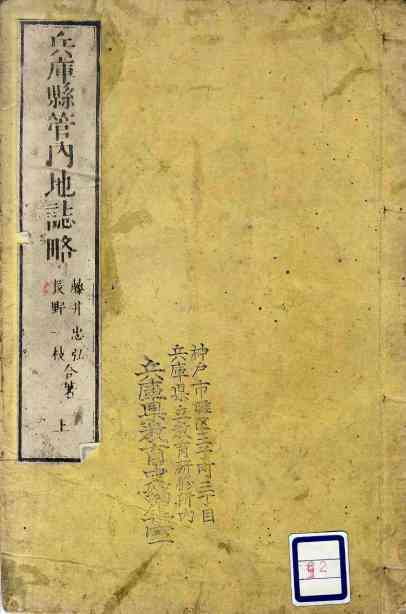 神戸市灘区王子町三丁目
兵庫県立教育研修所内
兵庫県教育史編集
兵庫縣管内地誌略
藤井忠弘
長野一枝
合著
上
92